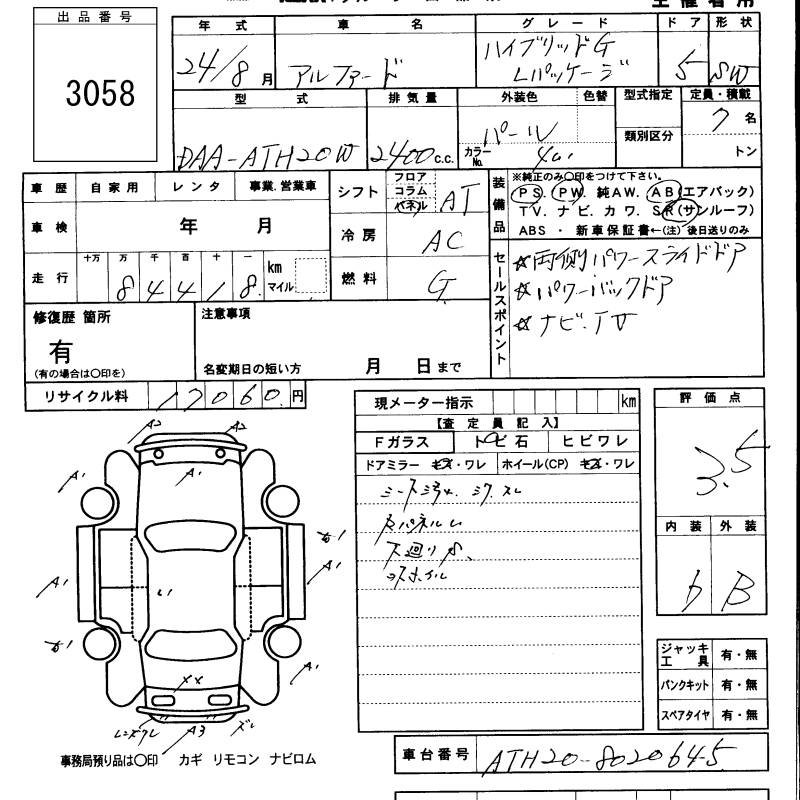 出品番号
3058
年式 車名 グレード ドア 形状
24/8月 アルファード ハイブリッドG Lパッケージ 5 SW
型式 排気量 外装色 色替 型式指定 定員・積載
DAA-ATH20W 2400c.c. パール 類別区分 7名
カラーNo. トン
車歴 自家用 レンタ 事業.営業車
車検 年 月
走行 十万 万 千 百 十 一 km マイル
84418
シフト フロア コラム パネル AT
冷房 AC
燃料 G
装備品
※純正のみ〇印をつけて下さい。
PS. PW. 純AW. AB(エアバック)
TV. ナビ. カワ. SR(サンルーフ)
ABS・新車保証書←(注) 後日送りのみ
セールスポイント
☆両側パワースライドドア
☆パワーバックドア
☆ナビ.TV
修復歴 箇所
有
(有の場合は〇印を)
注意事項
名変期日の短い方 月 日まで
リサイクル料 17060円
現メーター指示 km
【査定員記入】
Fガラス トビ石 ヒビワレ
ドアミラー キズ・ワレ ホイール(CP) キズ・ワレ
下廻り
評価点
3.5
内装 外装
B
ジャッキ工具 有・無
パンクキット 有・無
スペアタイヤ 有・無
A2 A2
A1 A1 A1
A1 A1
A1
XX
A3
事務局預り品は〇印 カギ リモコン ナビロム
車台番号 ATH20-8020645